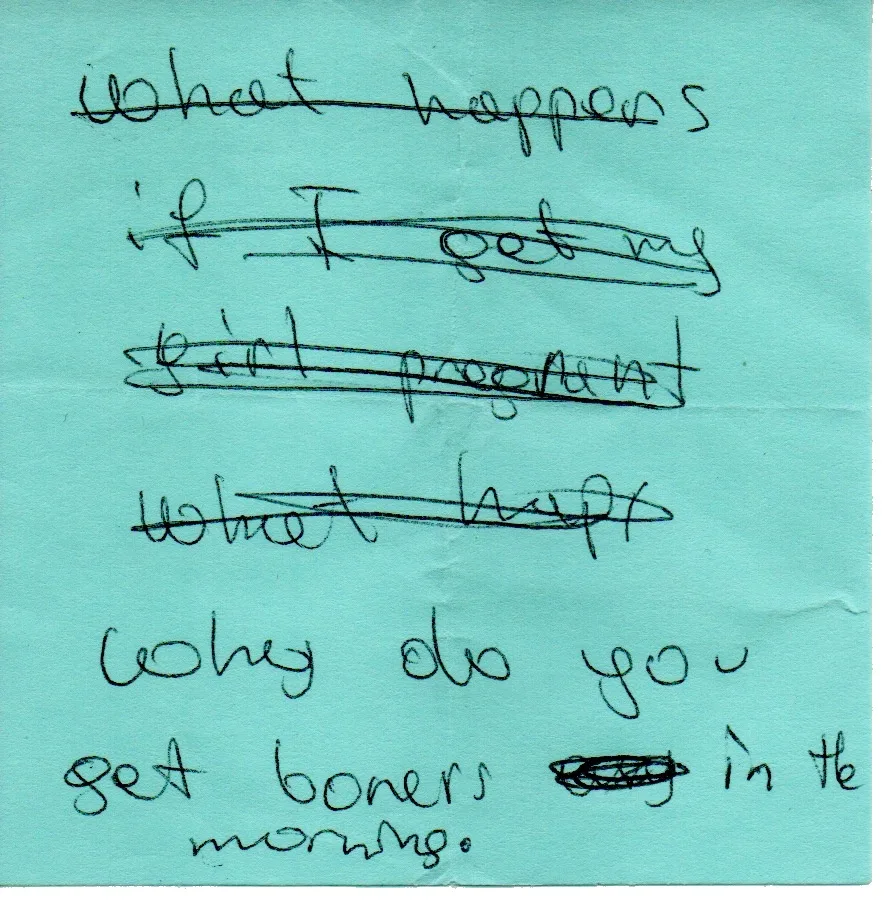 What happens
if I get my
girl pregnant
What happ
Why do you
get boners in the
morning.